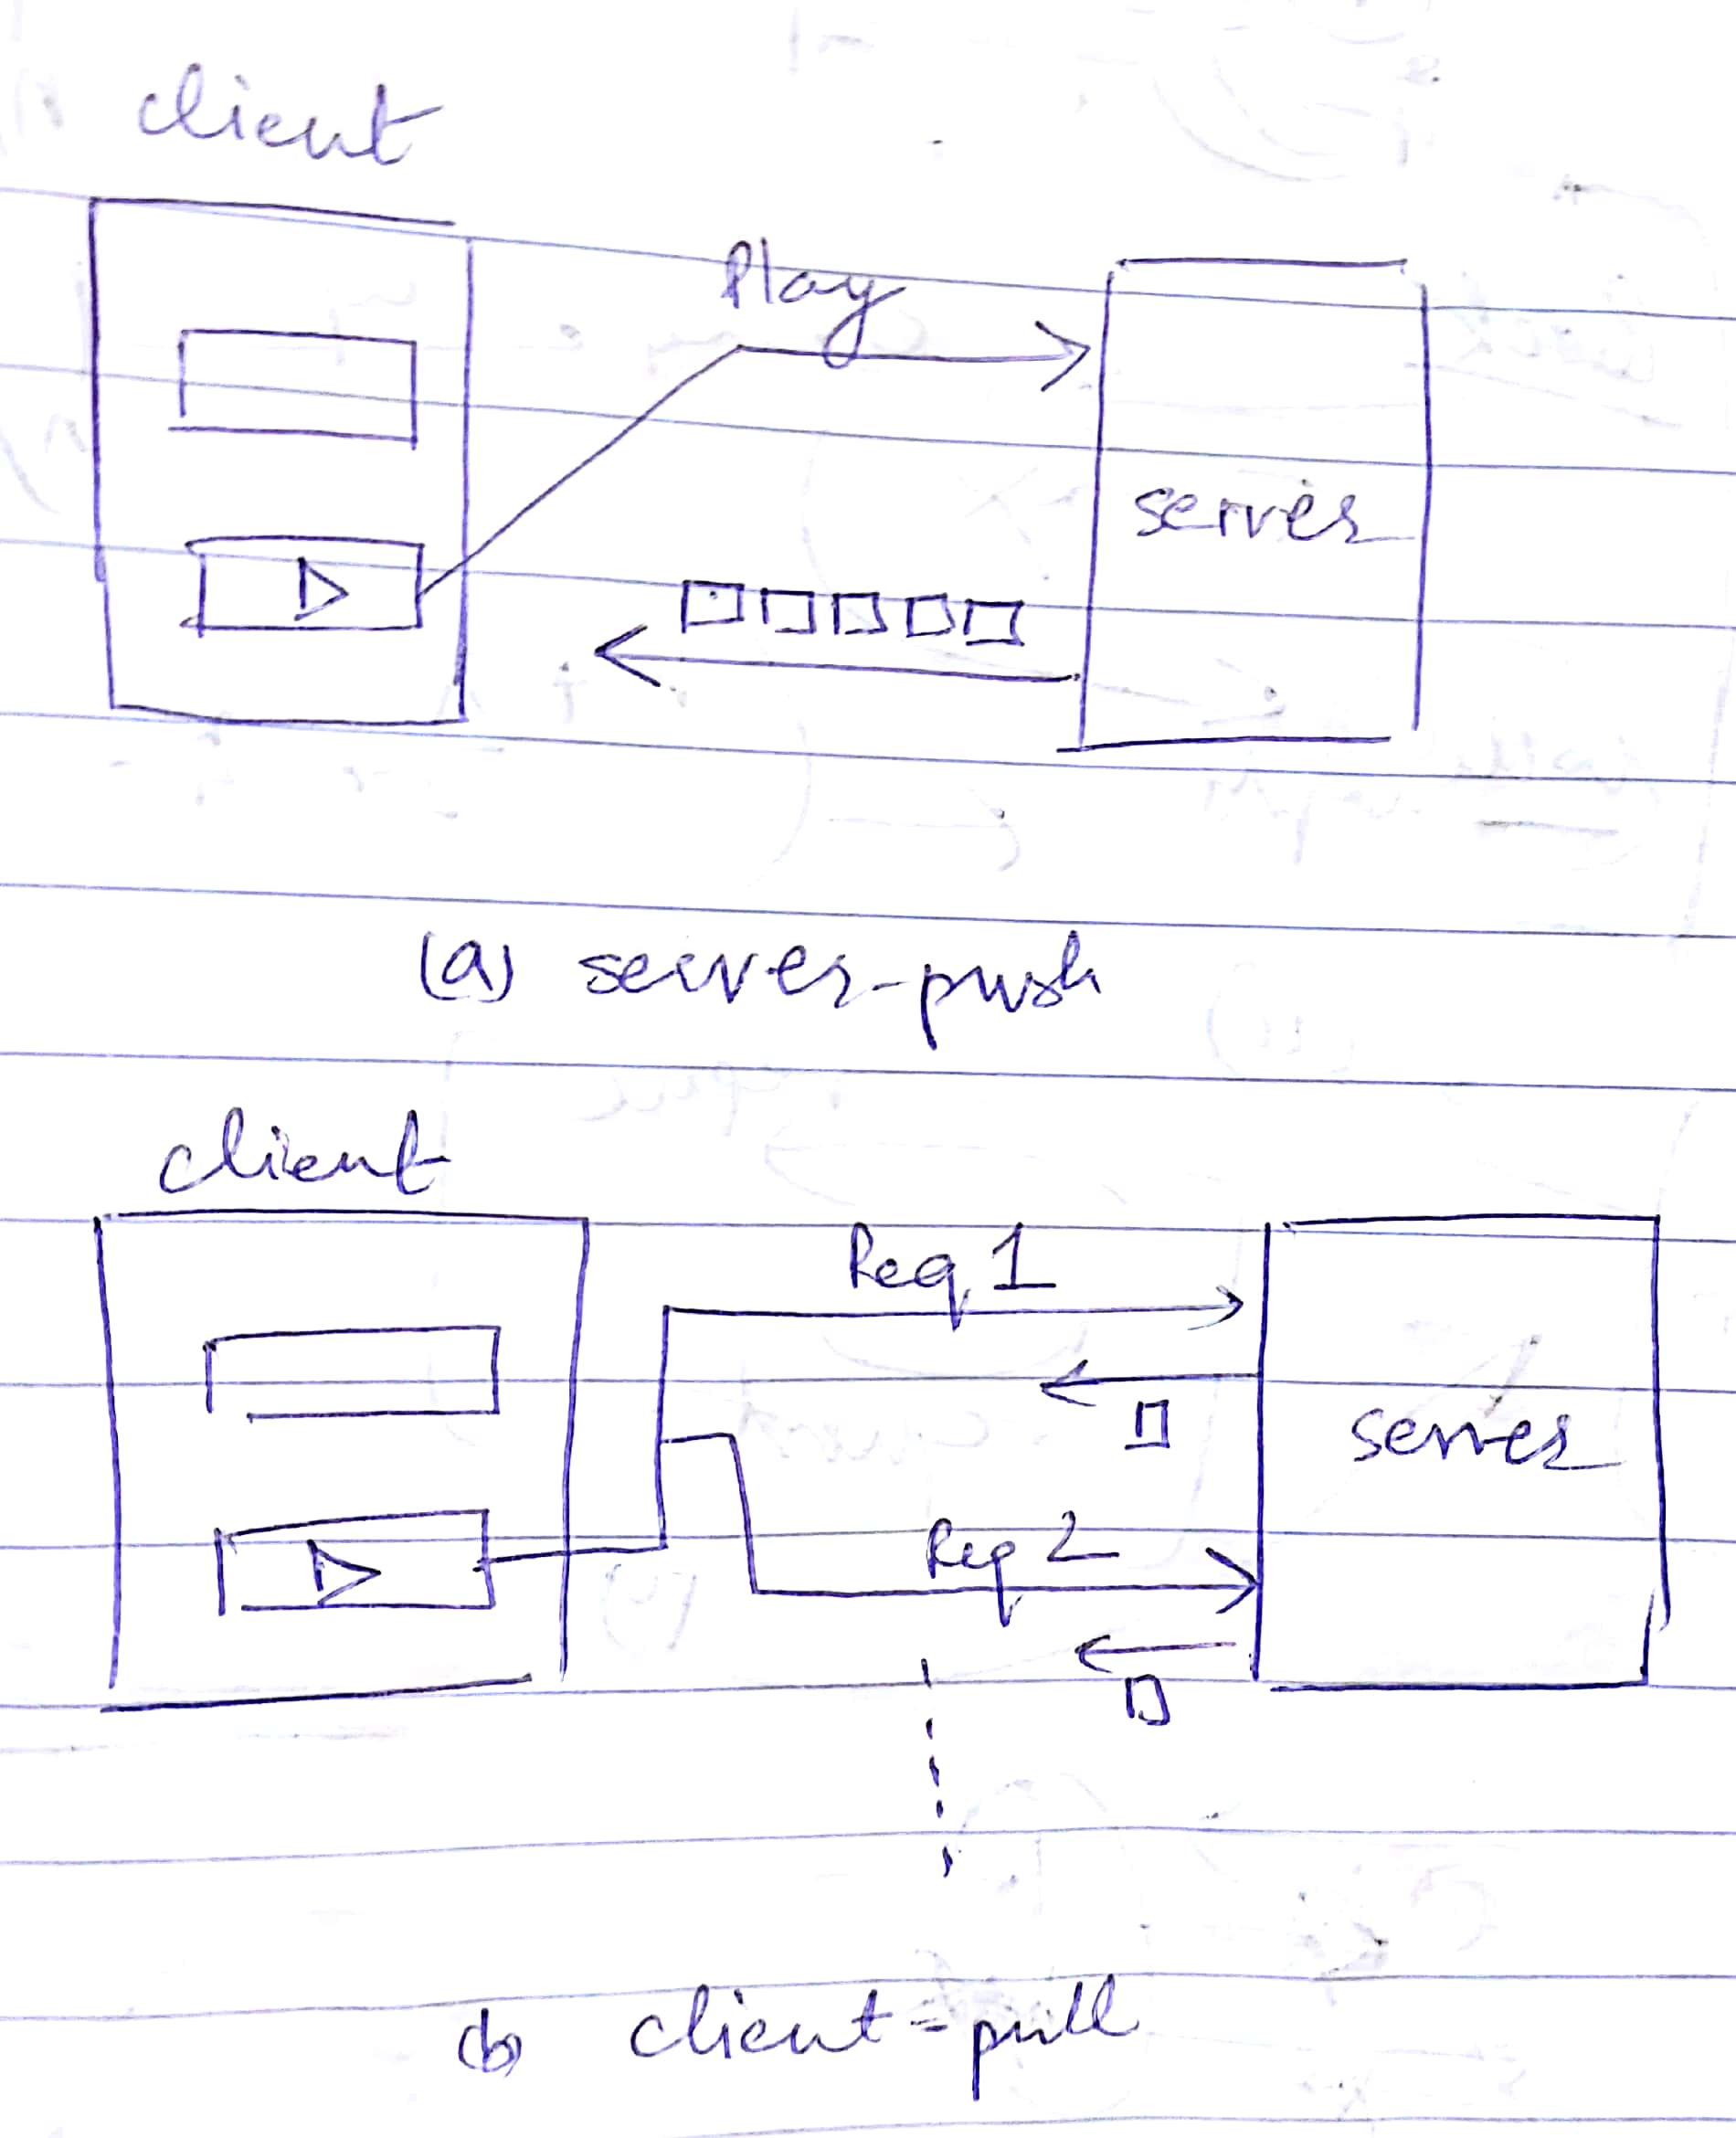 client
Play
server
(a) server-push
client
Req 1
server
Req 2
(b) client-pull